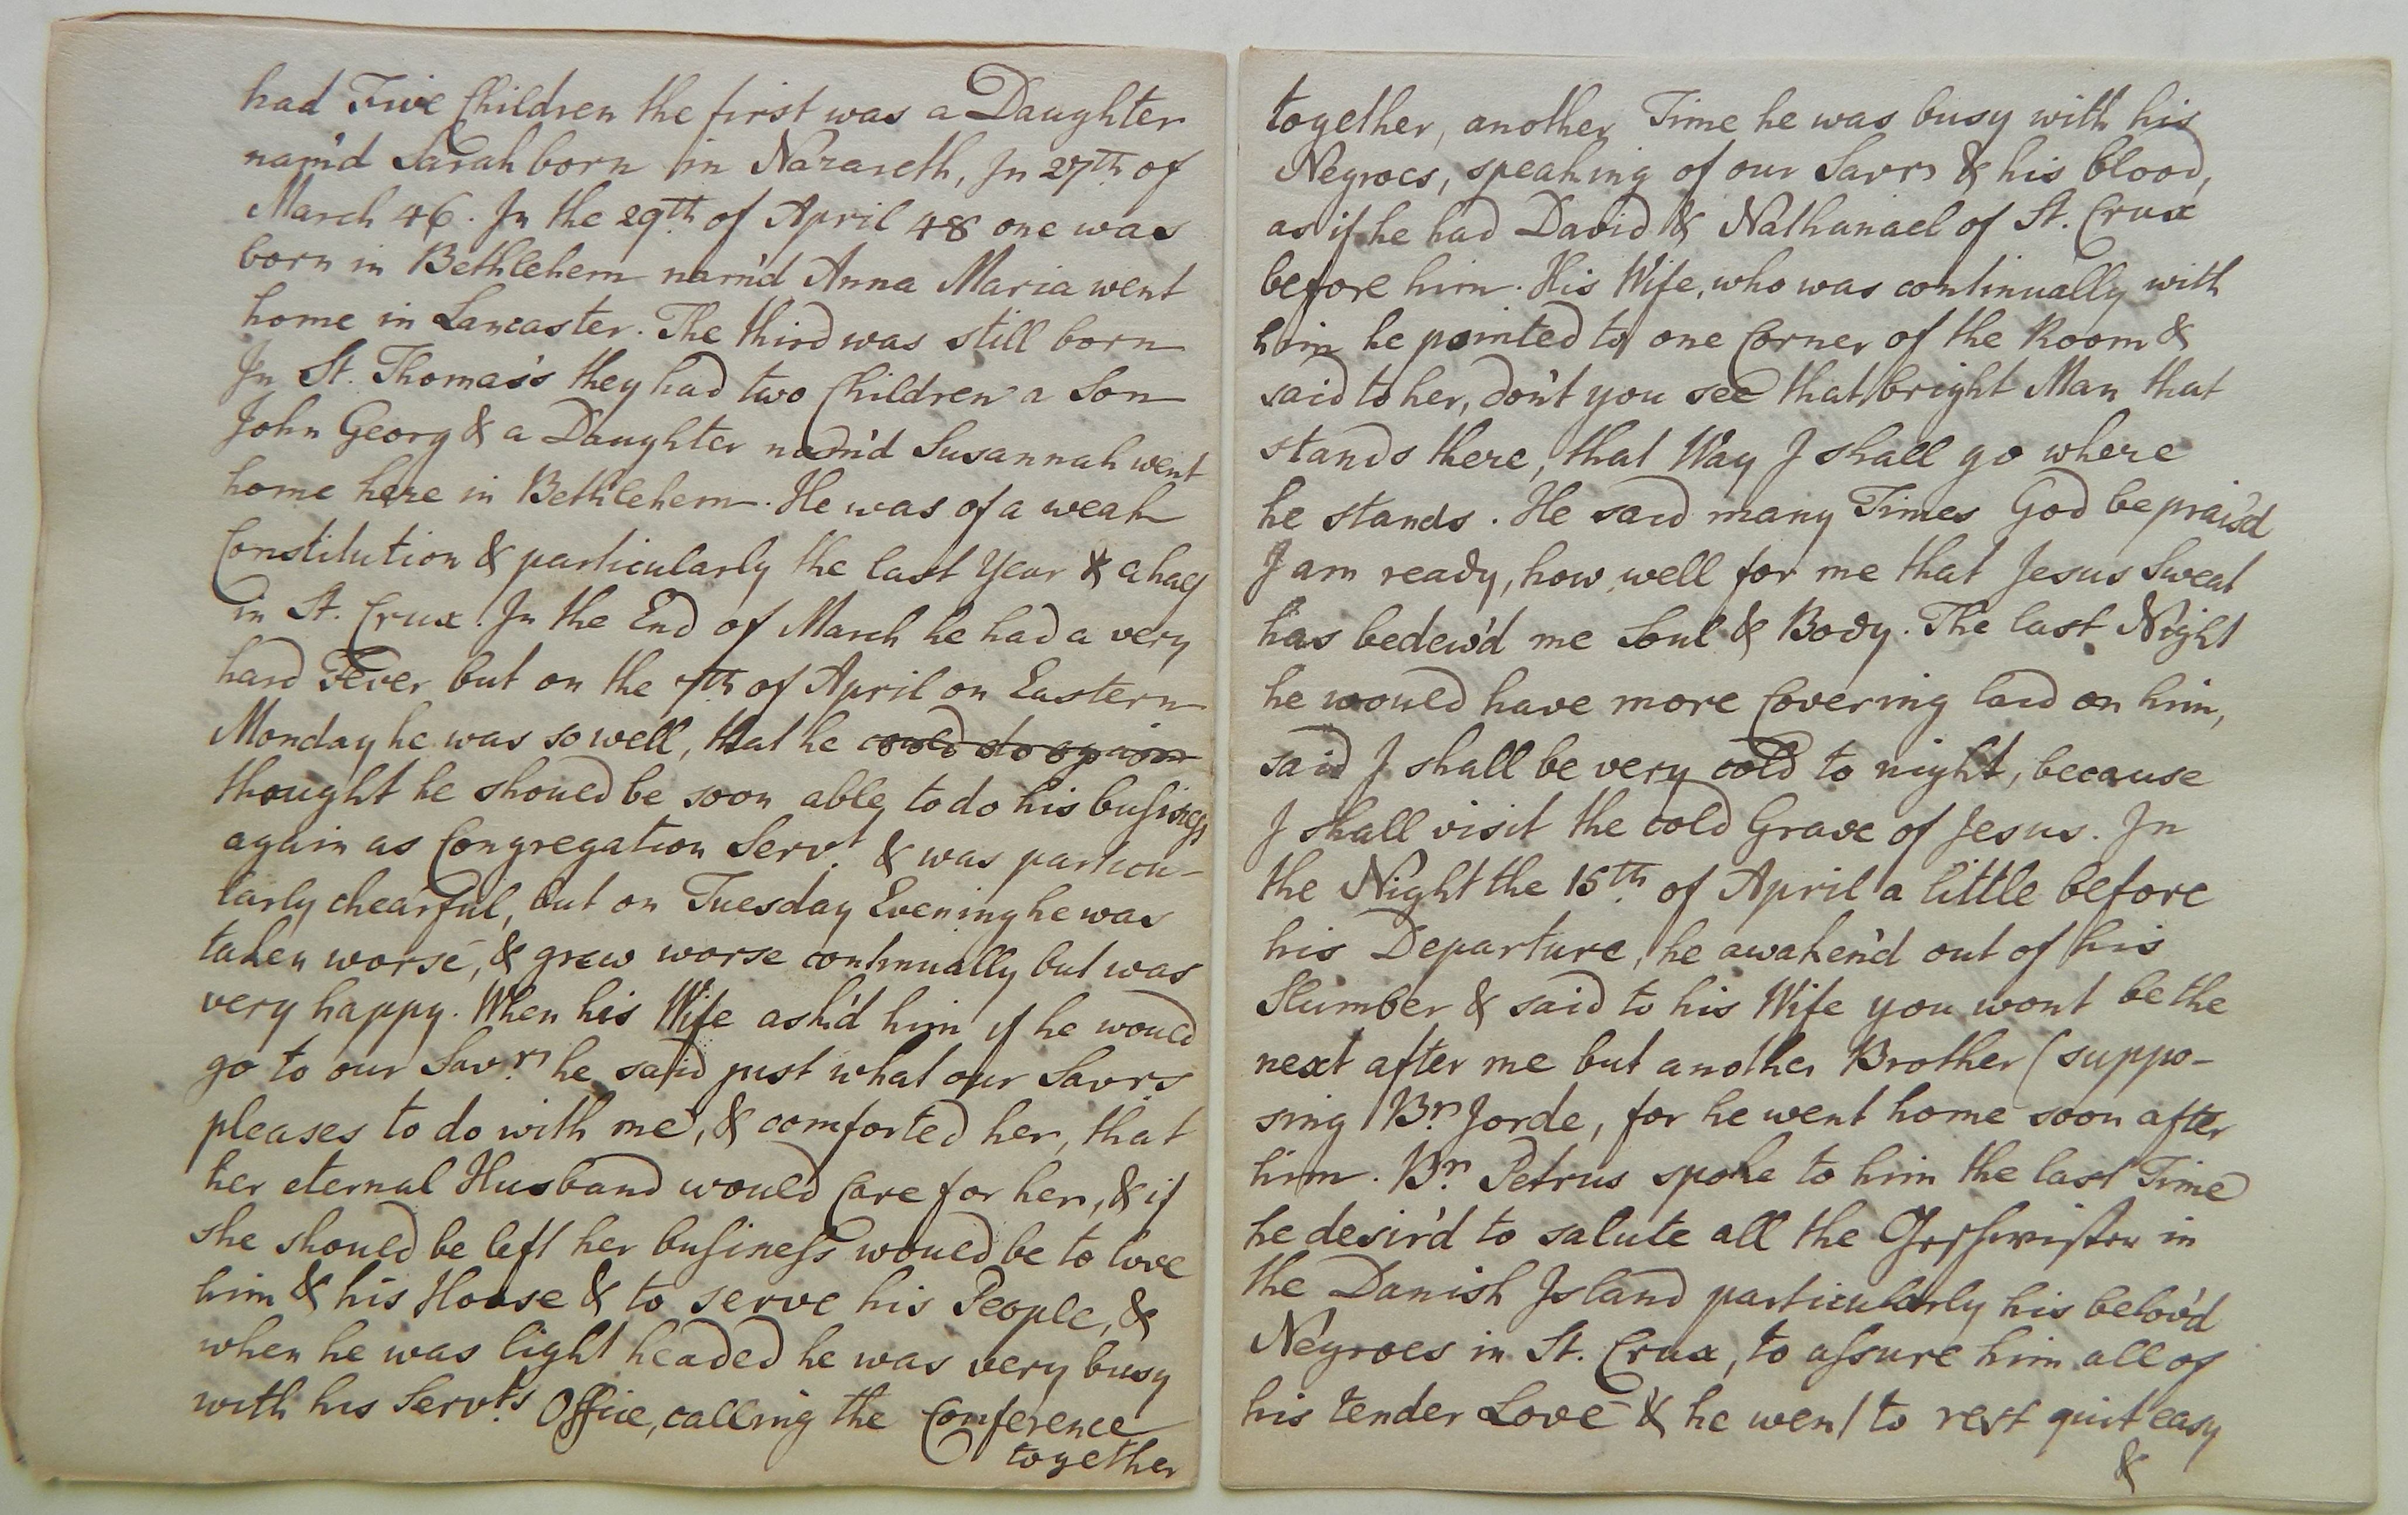 had Five Children the first was a Daughter
nam'd Sarah born in Nazareth, In 27th of
March 46. In the 29th of April 48 one was
born in Bethlehem nam'd Anna Maria went
home in Lancaster. The third was still born
In St. Thomas's they had two Children a Son
John Georg & a Daughter nam'd Susannah went
home here in Bethlehem. He was of a weak
Constitution & particularly the last Year & a half
in St. Crux. In the End of March he had a very
hard Fever but on the 7th of April on Eastern
Monday he was so well, that he could do again
thought he should be soon able to do his busineſs
again as Congregation Servt. & was particu-
larly chearful, but on Tuesday Evening he was
taken worse, & grew worse continually but was
very happy. When his Wife ask'd him if he would
go to our Savr. he said just what our Savr.
pleases to do with me, & comforted her, that
her eternal Husband would Care for her, & if
she should be left her buſineſs would be to love
him & his House & to serve his People, &
when he was light headed he was very busy
with his Servts. Office, calling the Conference
together
together, another Time he was busy with his
Negroes, speaking of our Savr. & his blood,
as if he had David & Nathanael of St. Crux
before him. His Wife, who was continually with
him he pointed to one Corner of the Room &
said to her, don't you see that bright Man that
stands there, that Way I shall go where
he stands. He said many Times God be prais'd
I am ready, how well for me that Jesus Sweat
has bedew'd me Soul & Body. The last Night
he would have more Covering laid on him,
said I shall be very cold to night, because
I shall visit the cold Grave of Jesus. In
the Night the 15th. of April a little before
his Departure, he awaken'd out of his
Slumber & said to his Wife you wont be the
next after me but another Brother (suppo-
sing Br. Jorde, for he went home soon after
him. Br. Petrus spoke to him the last Time
he desir'd to salute all the Geschwister in
the Danish Island particularly his belov'd
Negroes in St. Crux, to aſsure him all of
his tender Love & he went to rest quit easy
&